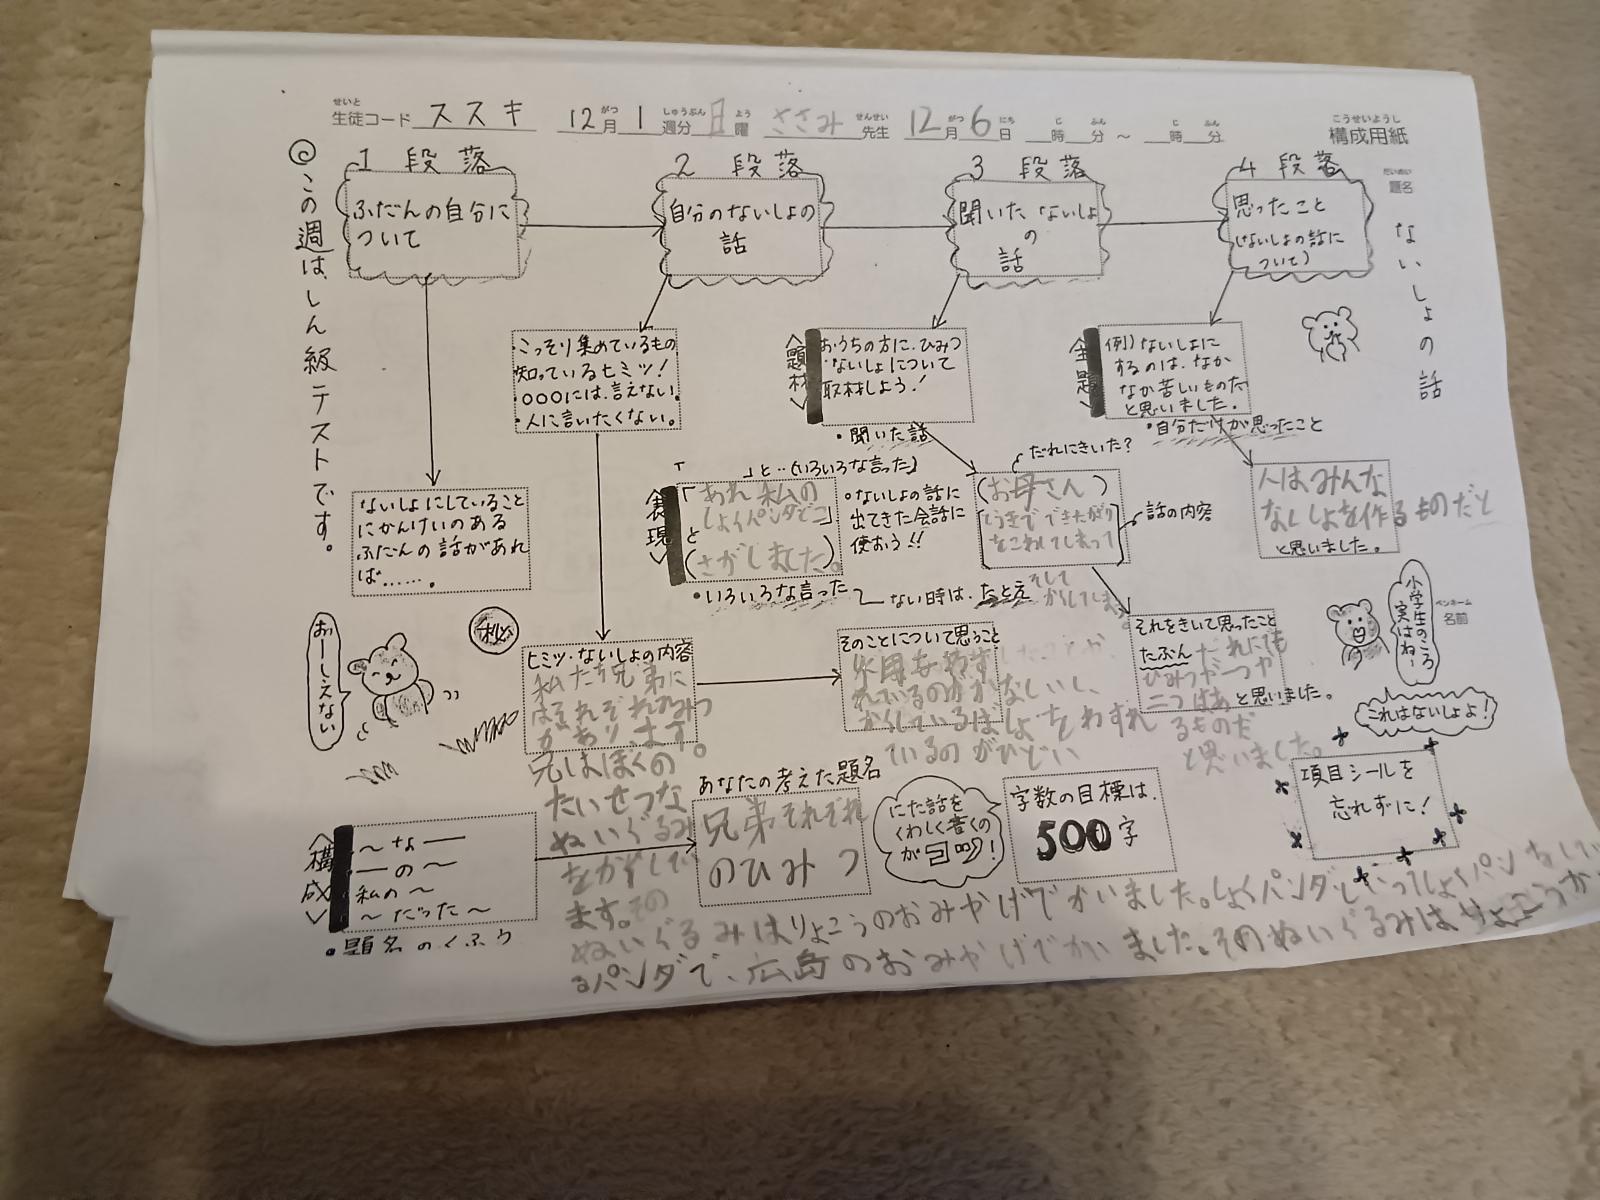 せいと がつ しゅうぶん よう せんせい がつ にち じ ふん じ ふん こうせいようし
生徒コード ススキ 12月1週分 日曜 ささみ先生 12月6日 時 分 ～ 時 分 構成用紙
だいめい
題名
ないしょの話
◎この週は、しん級テストです。
1 段落
ふだんの自分に
ついて
2 段落
自分のないしょの
話
3 段落
聞いた ないしょ
の
話
4 段落
思ったこと
(ないしょの話に
ついて)
・こっそり集めているもの
知っているヒミツ!
・○○○には、言えない。
・人に言いたくない。
〈題材〉
おうちの方に、ひみつ
ないしょについて
取材しよう!
・聞いた話
〈主題〉
例)ないしょに
するのは、なか
なか苦しいものだ
と思いました。
・自分だけが思ったこと
ないしょにしていること
にかんけいのある
ふだんの話があれ
ば……。
「 」と‥(いろいろな言った)
〈表現〉
「あれ私の
しょくパンダどこ」
と
(さがしました)。
・いろいろな言った
○ないしょの話に
出てきた会話に
使おう!!
ない時は、たとえ
だれにきいた?
(お母さん)
とうきでできたかざり
をこわしてしまって
そして
かくしてしま
話の内容
人はみんな
ないしょを作るものだと
と思いました。
おーしえない
秘
ヒミツ・ないしょの内容
私たち兄弟に
はそれぞれひみつ
があります。
兄はぼくの
たいせつな
ぬいぐるみ
をかくして
ます。その
ぬいぐるみはりょこうのおみやげでかいました。しょくパンダといってしょくパン
るパンダで、広島のおみやげでかいました。そのぬいぐるみは
そのことについて思うこと
れているのがかなしいし、
かくしているばしょをわすれ
ているのがひどい
それをきいて思ったこと
たぶんだれにも
ひみつが一つか
二つはあ と思いました。
るものだ
と思いました。
小学生のころ
実はね～
ペンネーム
名前
これはないしょよ!
〈構成〉
～な―
―の～
私の～
～だった～
・題名のくふう
あなたの考えた題名
兄弟それぞれ
のひみつ
にた話を
くわしく書くの
が
字数の目標は、
500字
項目シールを
忘れずに!